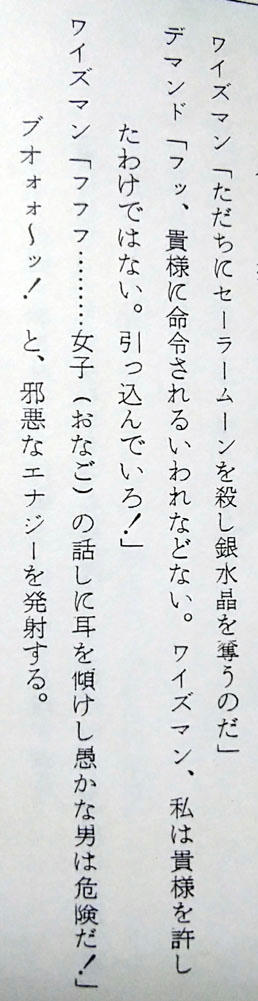 ワイズマン「ただちにセーラームーンを殺し銀水晶を奪うのだ」
デマンド「フッ、貴様に命令されるいわれなどない。ワイズマン、私は貴様を許し
たわけではない。引っ込んでいろ！」
ワイズマン「フフフ………女子（おなご）の話しに耳を傾けし愚かな男は危険だ！」
ブオォォ〜ッ！　と、邪悪なエナジーを発射する。